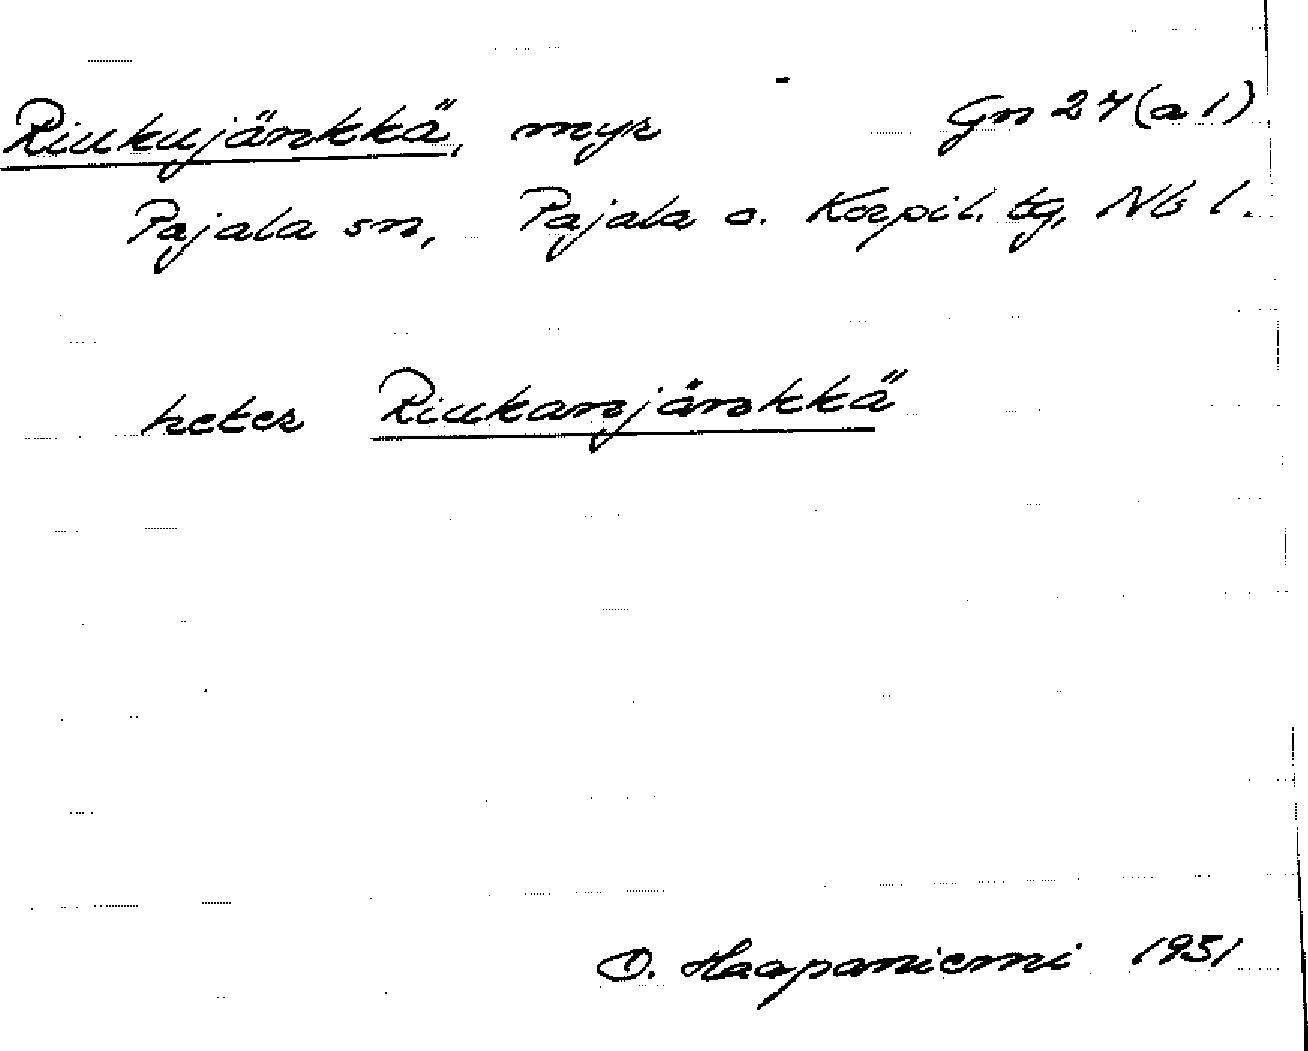 Riukujänkkä, myr Gn 27 (a 1)
Pajala sn, Pajala o. Korpil. tg, Nb l.
heter Riukanjänkkä
O. Haapaniemi 1951